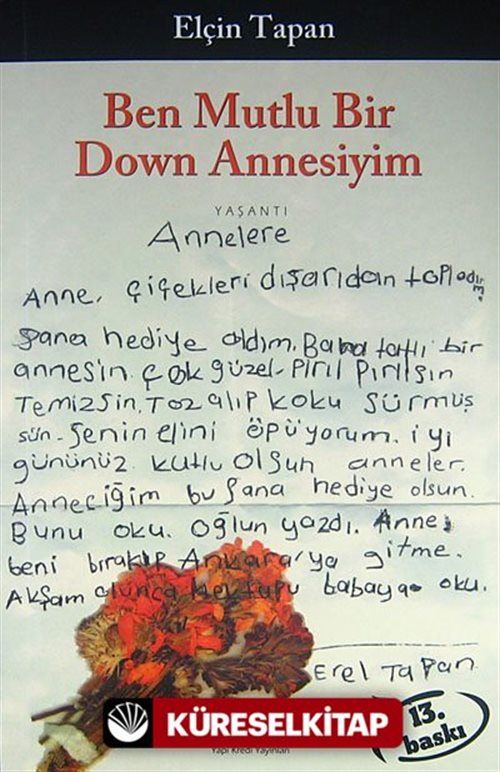 Elçin Tapan
Ben Mutlu Bir
Down Annesiyim
YAŞANTI
Annelere
Anne, çiçekleri dışarıdan topladım.
Sana hediye aldım. Bana tatlı bir
annesin. çok güzel - Pırıl Pırılsın
Temizsin. Toz alıp koku sürmüş
sün - Senin elini öpüyorum. iyi
gününüz kutlu olsun anneler.
Anneciğim bu sana hediye olsun.
Bunu oku. oğlun yazdı. Anne,
beni bırakıp Ankara'ya gitme.
Akşam olunca mektupu babaya oku.
Erel Tapan
13.
baskı
KÜRESELKİTAP
Yapı Kredi Yayınları